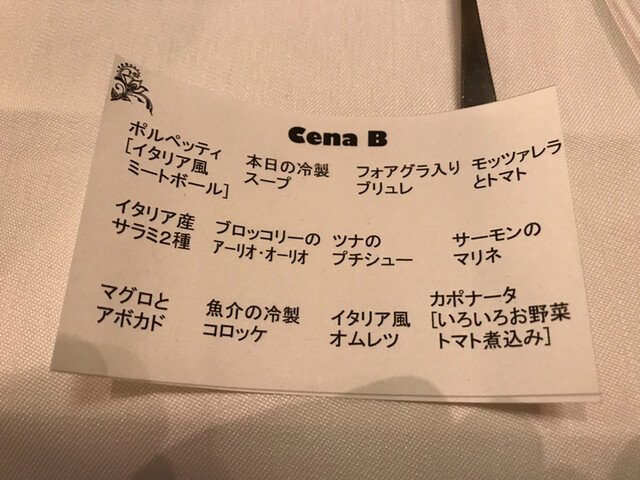 Cena B
ポルペッティ
[イタリア風
ミートボール]
本日の冷製
スープ
フォアグラ入り
ブリュレ
モッツァレラ
とトマト
イタリア産
サラミ2種
ブロッコリーの
アーリオ・オーリオ
ツナの
プチシュー
サーモンの
マリネ
マグロと
アボカド
魚介の冷製
コロッケ
イタリア風
オムレツ
カポナータ
[いろいろお野菜
トマト煮込み]